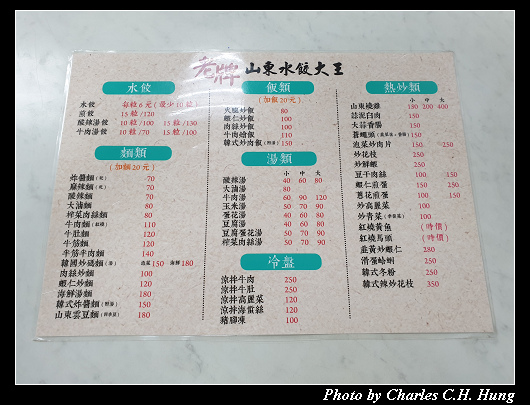 老牌 山東水餃大王
水餃
水餃 每粒6元(最少10粒)
煎餃 15粒/120
酸辣湯餃 10粒/100 15粒/130
牛肉湯餃 10粒/70 15粒/100
麵類
(加麵20元)
炸醬麵(乾) 70
麻辣麵(乾) 70
酸辣麵 70
大滷麵 80
榨菜肉絲麵 80
牛肉麵(紅燒) 110
牛肚麵 120
牛筋麵 120
牛筋半肉麵 140
韓國炒碼麵(湯) 150 海鮮 180
肉絲炒麵 100
蝦仁炒麵 120
海鮮湯麵 180
韓式炸醬麵 150
山東雲豆麵 180
飯類
(加飯20元)
火腿炒飯 80
蝦仁炒飯 100
肉絲炒飯 100
牛肉燴飯 110
韓式炒碼飯 150
湯類
小 中 大
酸辣湯 40 60 80
大滷湯 80
牛肉湯 60 90 120
玉米湯 50 70 90
蛋花湯 50 70 90
豆腐湯 40
豆腐蛋花湯 50 70 90
榨菜肉絲湯 50 70 90
冷盤
涼拌牛肉 250
涼拌牛肚 250
涼拌高麗菜 120
涼拌海蜇絲 120
豬腳凍 100
熱炒類
小 中 大
山東燒雞 130 200 400
蒜泥白肉 150
大蒜香腸 150
蒼蠅頭 150
泡菜炒肉片 150 250
炒花枝 250
炒鮮蝦 250
豆干肉絲 150 250
蝦仁煎蛋 150 250
蔥花煎蛋 100
炒高麗菜 100
炒青菜 100
紅燒黃魚 (時價)
紅燒馬頭 (時價)
韭黃炒蝦仁 280
滑蛋蛤蜊 250
韓式冬粉 250
韓式辣炒花枝 350
Photo by Charles C.H. Hung